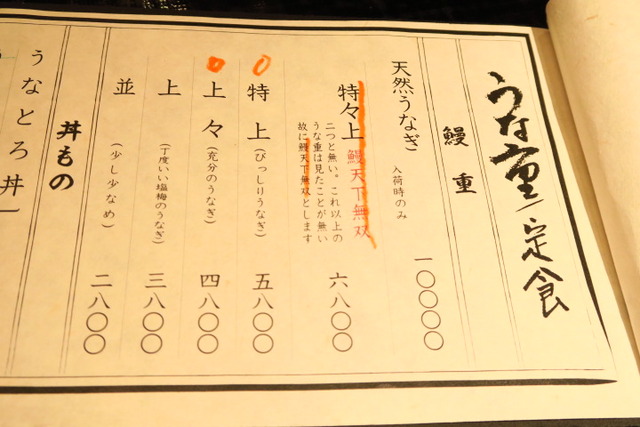 うな重定食
鰻重
天然うなぎ 入荷時のみ 一〇〇〇〇
特々上 鰻天下無双
二つと無い。これ以上の
うな重は見たことが無い
故に鰻天下無双とします
六八〇〇
特上(びっしりうなぎ) 五八〇〇
上々(充分のうなぎ) 四八〇〇
上(丁度いい塩梅のうなぎ) 三八〇〇
並(少し少なめ) 二八〇〇
丼もの
うなとろ丼